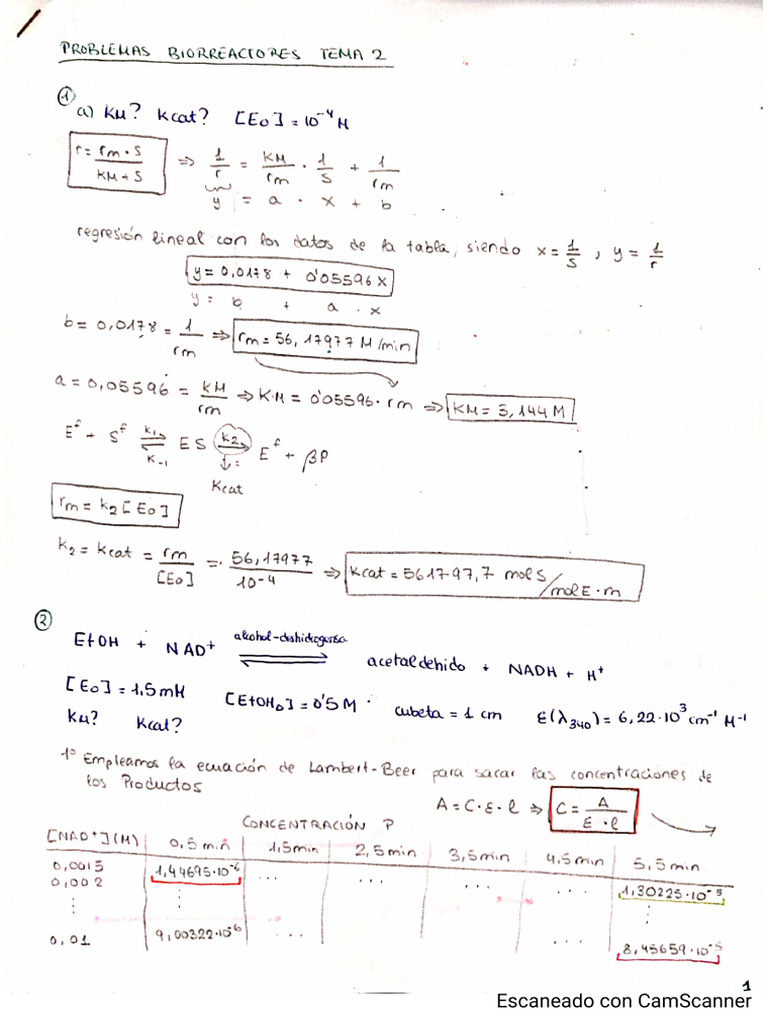 PROBLEMAS BIORREACTORES TEMA 2
① a) KM? Kcat? [E0] = 10⁻⁴ M
r = rm · S / KM + S ⇒ 1/r = KM/rm · 1/S + 1/rm
y = a · x + b
regresión lineal con los datos de la tabla, siendo x = 1/S , y = 1/r
y = 0,0178 + 0'05596 X
y = b + a · x
b = 0,0178 = 1/rm ⇒ rm = 56,17977 M/min
a = 0,05596 = KM/rm ⇒ KM = 0'05596 · rm ⇒ KM = 3,144 M
Eᶠ + Sᶠ k1 ⇌ K-1 ES k2 → Eᶠ + βP
↓:
Kcat
rm = k2 [E0]
k2 = kcat = rm/[E0] = 56,17977/10⁻⁴ ⇒ Kcat = 561797,7 mol S/mol E · m
②
EtOH + NAD⁺ alcohol-deshidrogenasa ⇌ acetaldehido + NADH + H⁺
[E0] = 1,5 mM [EtOH0] = 0'5 M cubeta = 1 cm E(λ340) = 6,22·10³ cm⁻¹ M⁻¹
KM? Kcat?
1º Empleamos la ecuación de Lambert-Beer para sacar las concentraciones de
los Productos
A = C · E · l ⇒ C = A / E · l
CONCENTRACIÓN P
[NAD⁺](M) 0,5 min 1,5min 2,5min 3,5min 4,5min 5,5min
0,0015 1,44695·10⁻⁶ ... ... ... ... 1,30225·10⁻⁵
0,002
⋮ ⋮ ⋮
0,01 9,00322·10⁻⁶ ... ... 8,45659·10⁻⁵
1
Escaneado con CamScanner